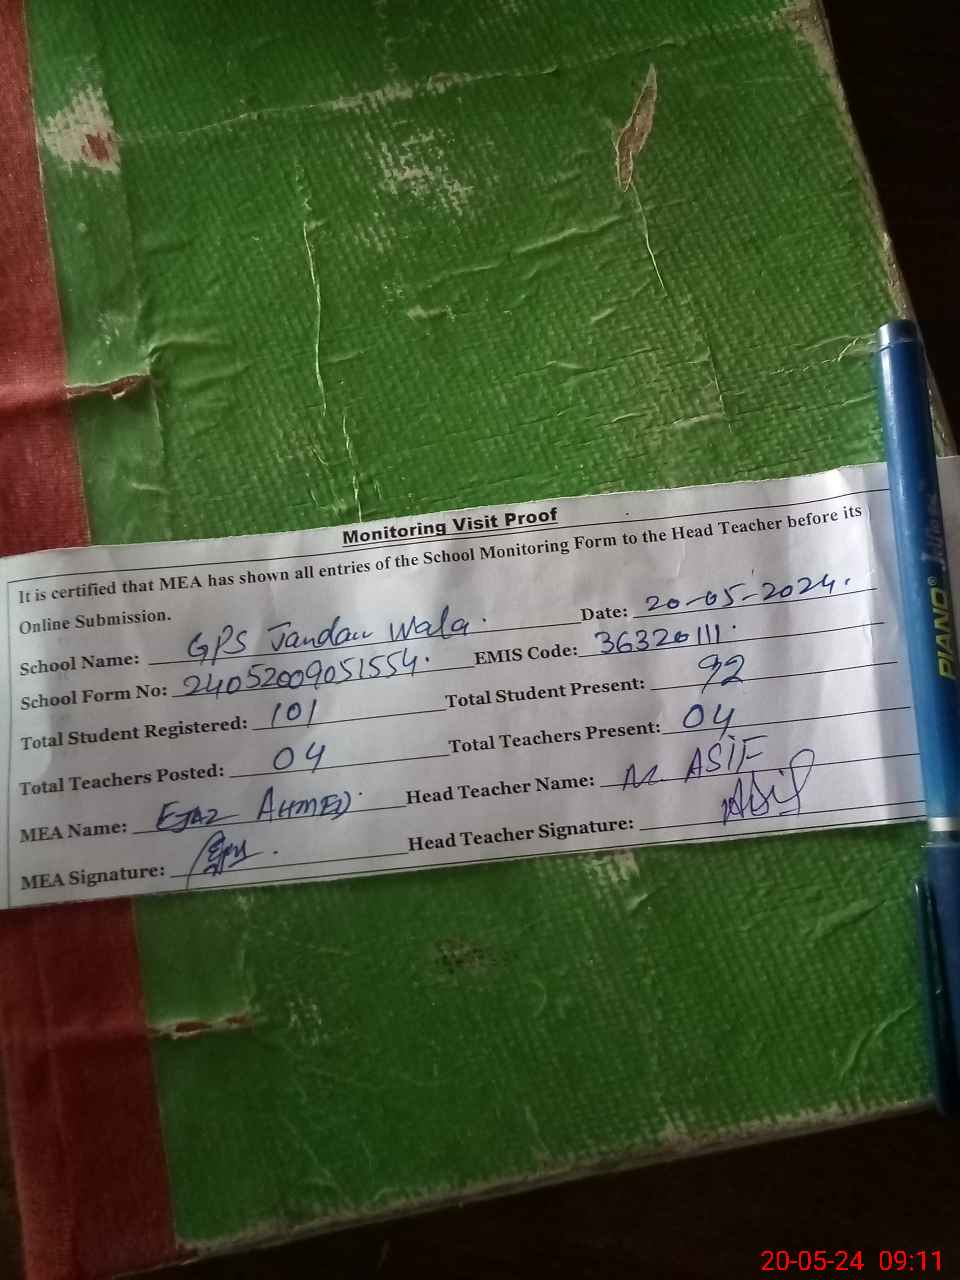 Monitoring Visit Proof
It is certified that MEA has shown all entries of the School Monitoring Form to the Head Teacher before its
Online Submission.
School Name: GPS Jandau Wala. Date: 20-05-2024.
School Form No: 24052009051554. EMIS Code: 36320111.
Total Student Registered: 101 Total Student Present: 92
Total Teachers Posted: 04 Total Teachers Present: 04
MEA Name: EJAZ AHMED Head Teacher Name: M. ASIF
MEA Signature: Head Teacher Signature: Asif
PIANO®
20-05-24 09:11